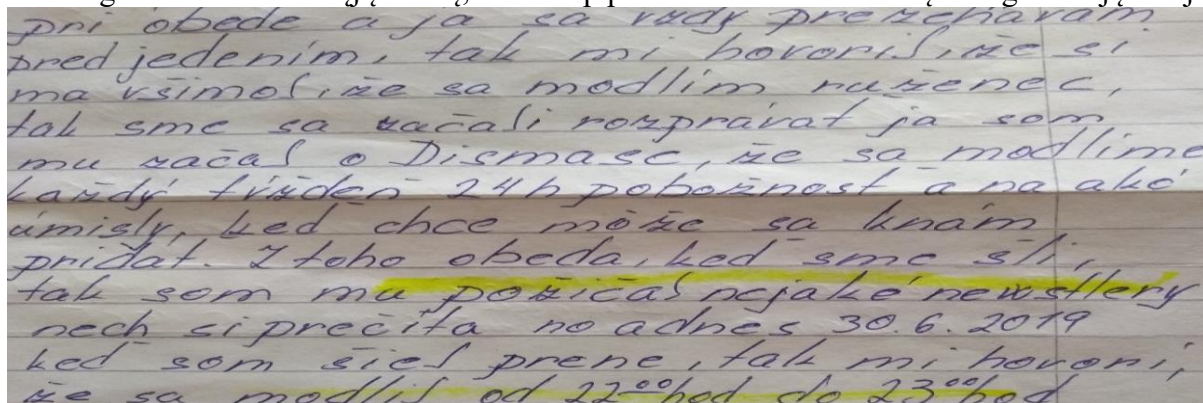 pri obede a ja sa vždy prežehávam
pred jedením, tak mi hovoril, že si
ma všimol, že sa modlím ruženec,
tak sme sa začali rozprávat ja som
mu začal o Dismase, že sa modlíme
každý tvížden 24h pobožnost a na aké
úmisly, ked chce može sa knám
pridat. Z toho obeda, ked sme šli,
tak som mu požičal nejaké newsllery
nech si prečíta no a dnes 30.6.2019
ked som šiel prene, tak mi hovorí,
že sa modlil od 22⁰⁰hod do 23⁰⁰hod